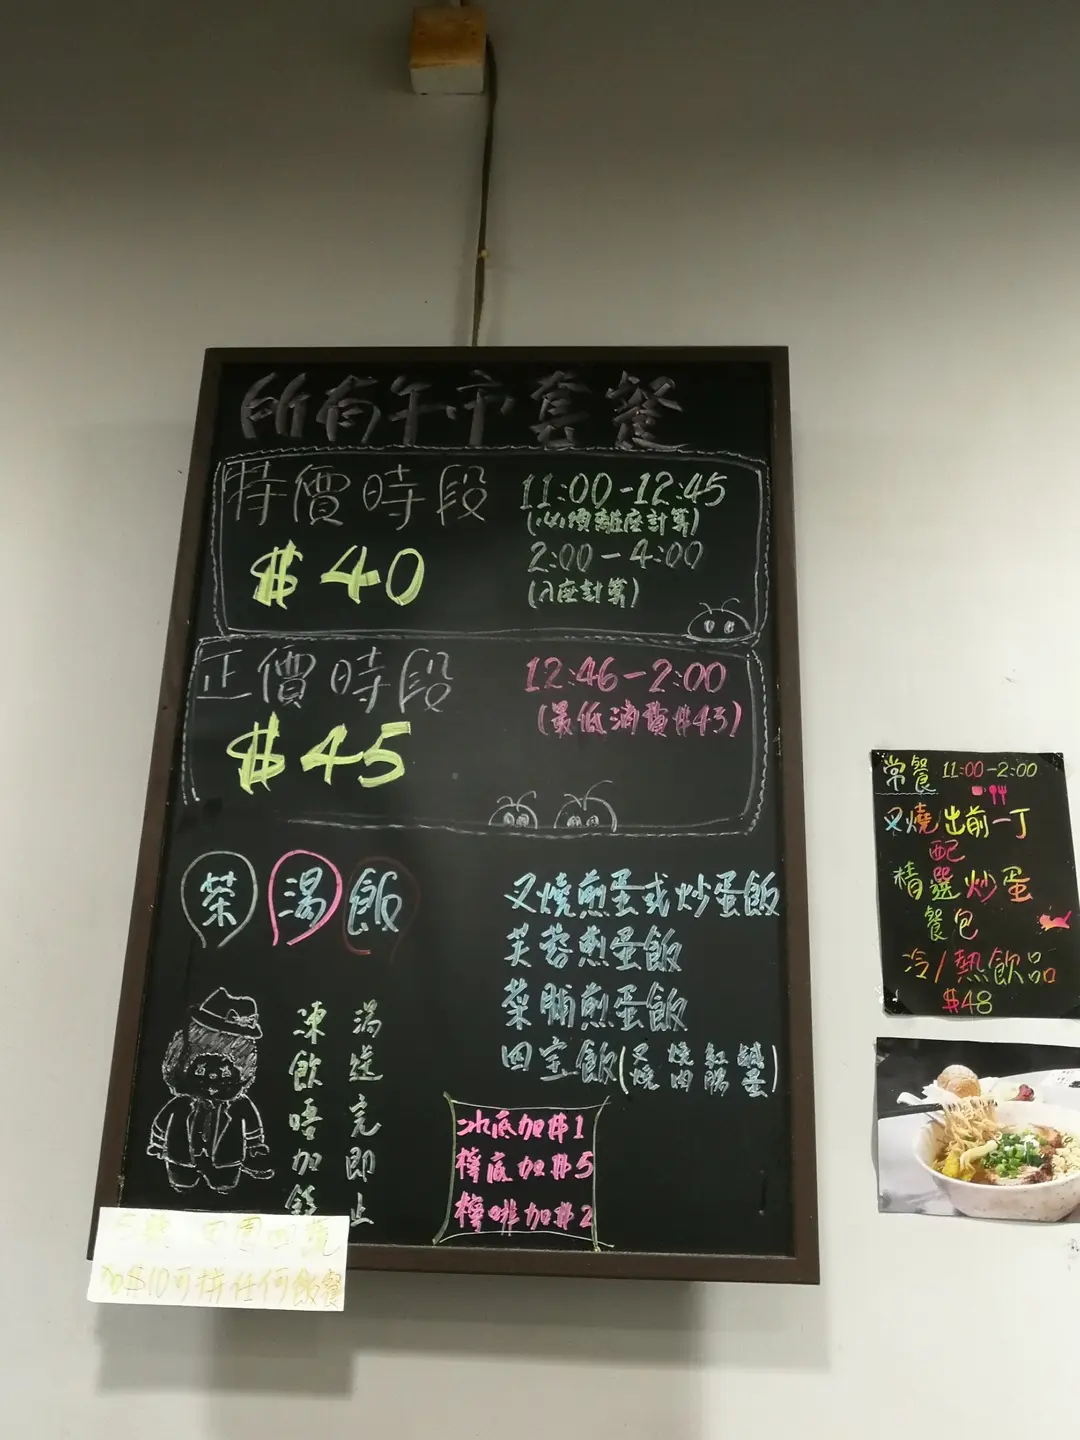 所有午市套餐
特價時段
11:00-12:45
(必須離座計算)
$40
2:00-4:00
(入座計算)
正價時段
12:46-2:00
(最低消費$43)
$45
茶 湯 飯
叉燒煎蛋或炒蛋飯
芙蓉煎蛋飯
菜脯煎蛋飯
四宝飯(叉燒 燒肉 紅腸 鹹蛋)
湯送完即止
凍飲唔加錢
冰底加$1
檸底加$5
檸啡加$2
加$10可拼任何飯餐
常餐 11:00-2:00
叉燒出前一丁
配
精選炒蛋
餐包
冷/熱飲品
$48